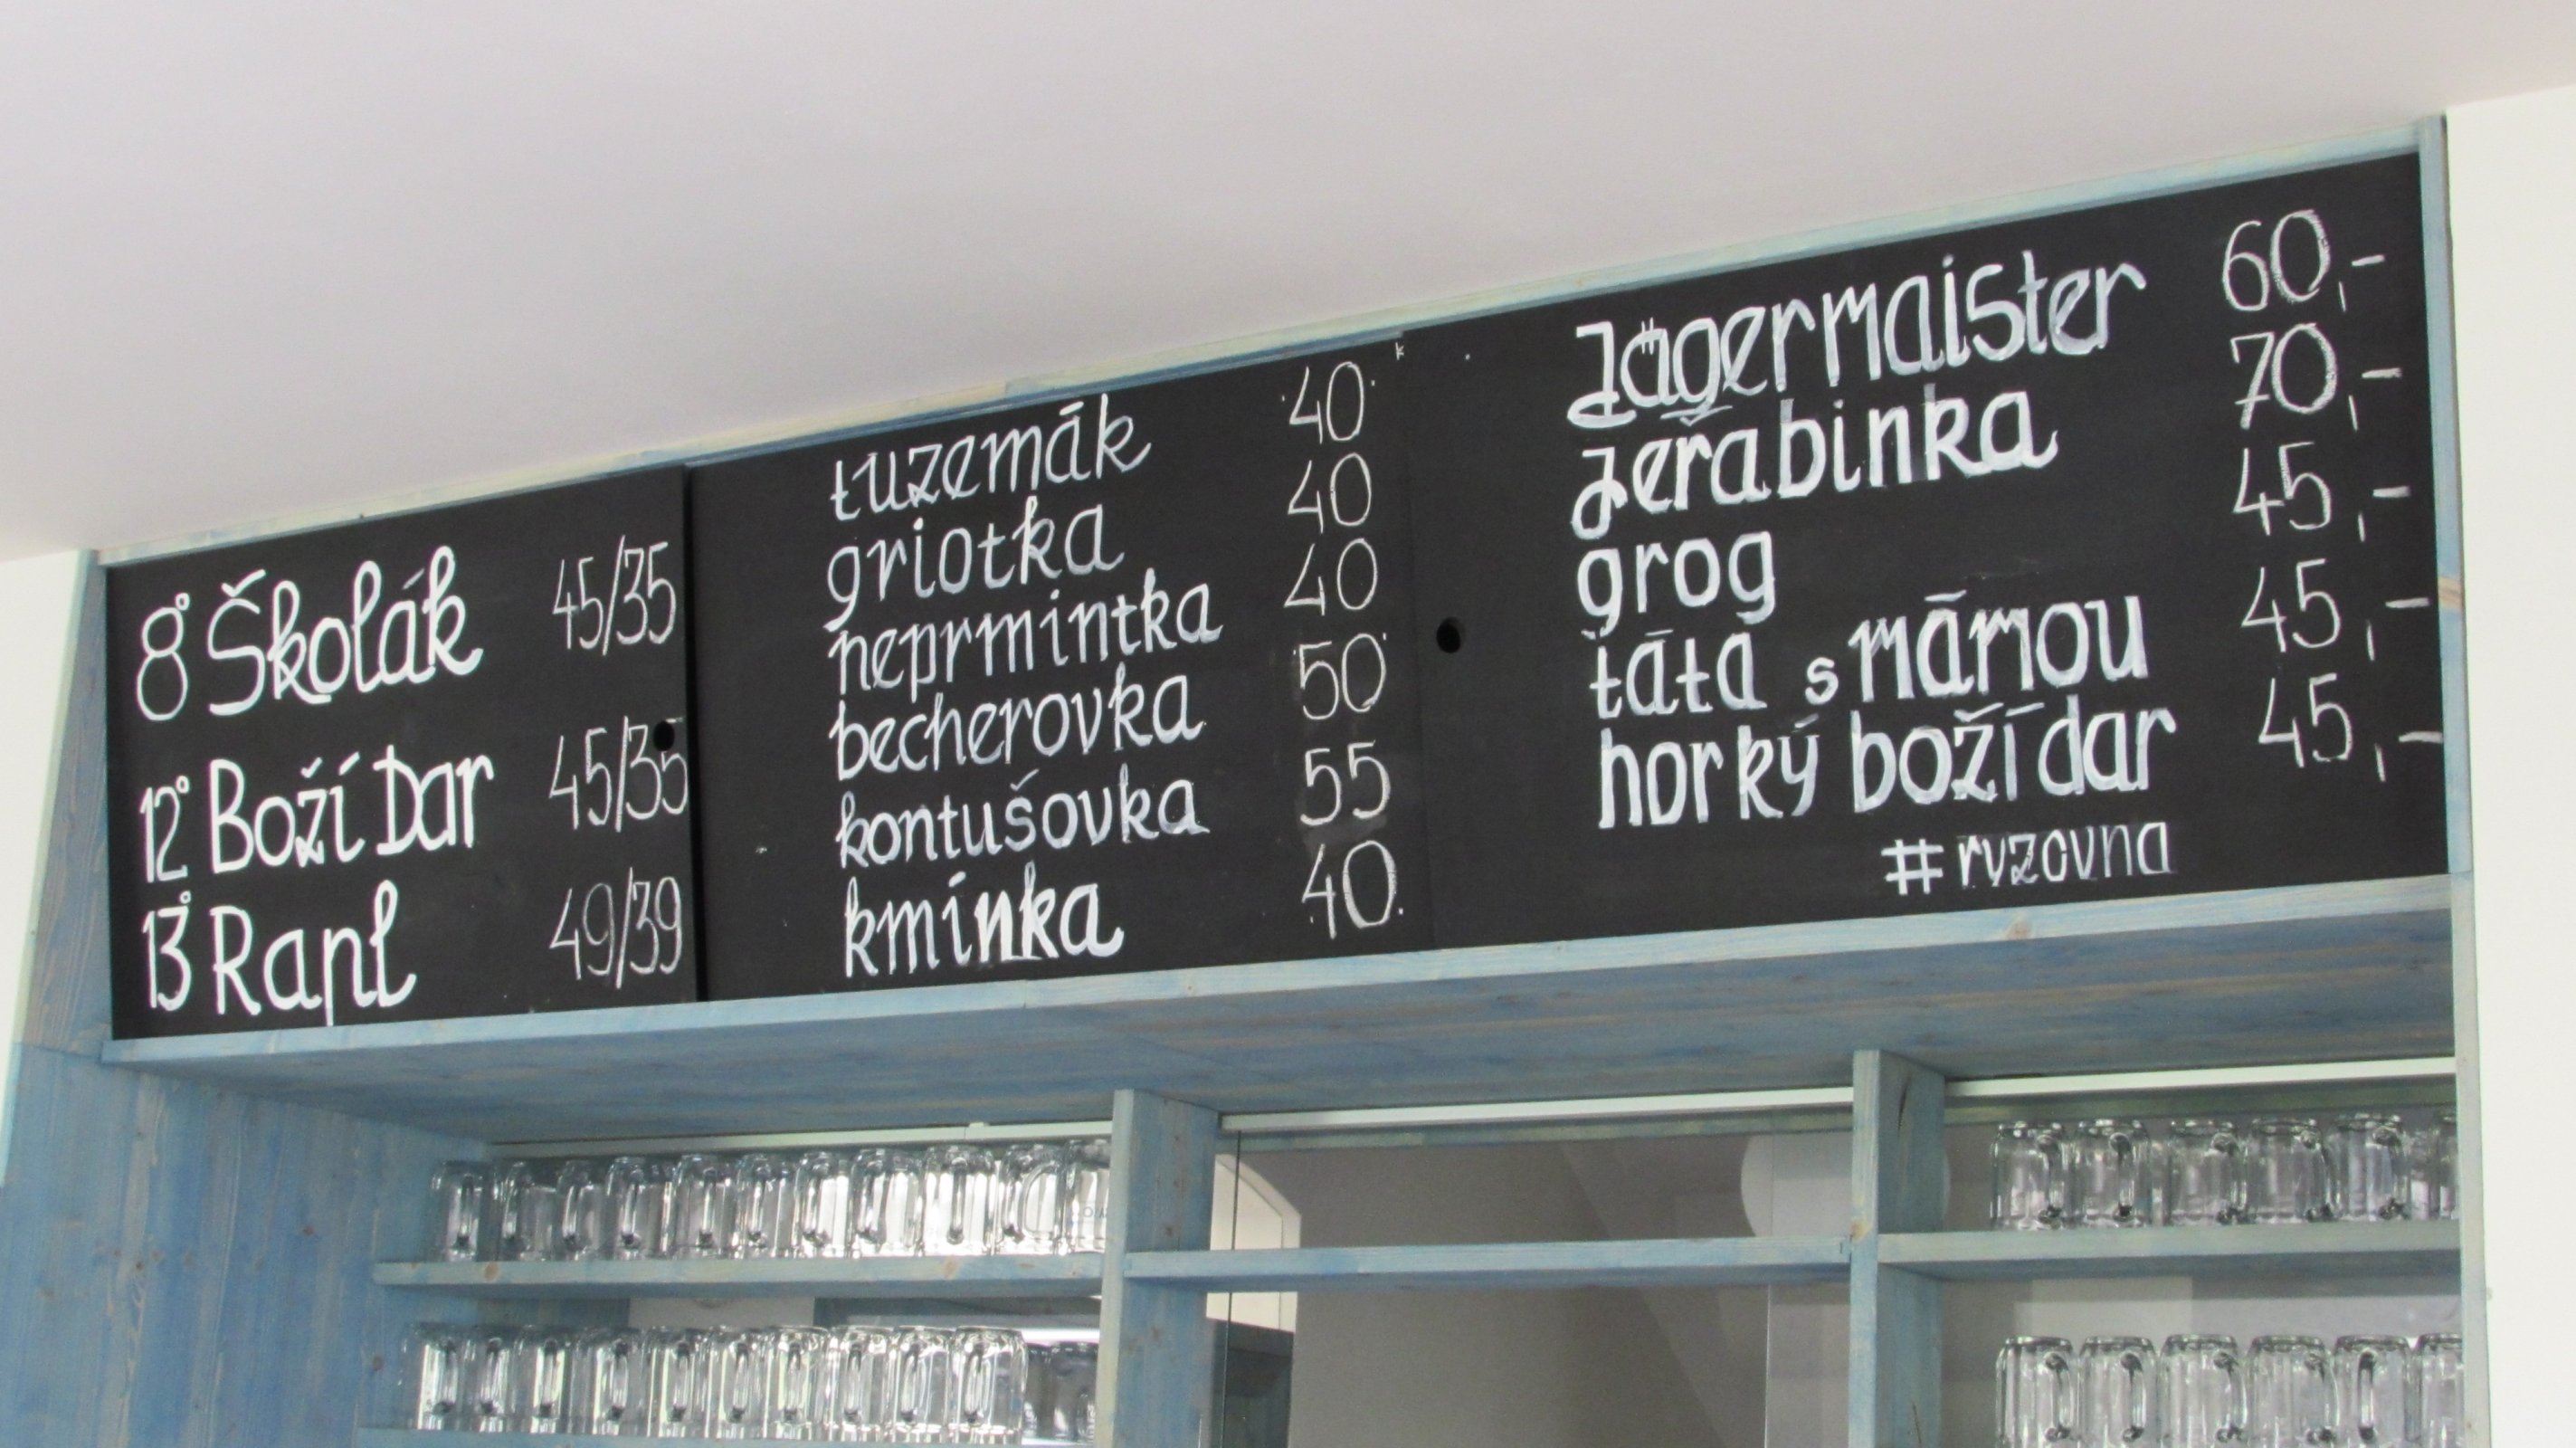 8° Školák 45/35
12° Boží Dar 45/35
13° Rapl 49/39
tuzemák 40
griotka 40
peprmintka 40
becherovka 50
kontušovka 55
kmínka 40
Jägermaister 60,-
jeřabinka 70,-
grog 45,-
táta s mámou 45,-
horký boží dar 45,-
#ryzovna